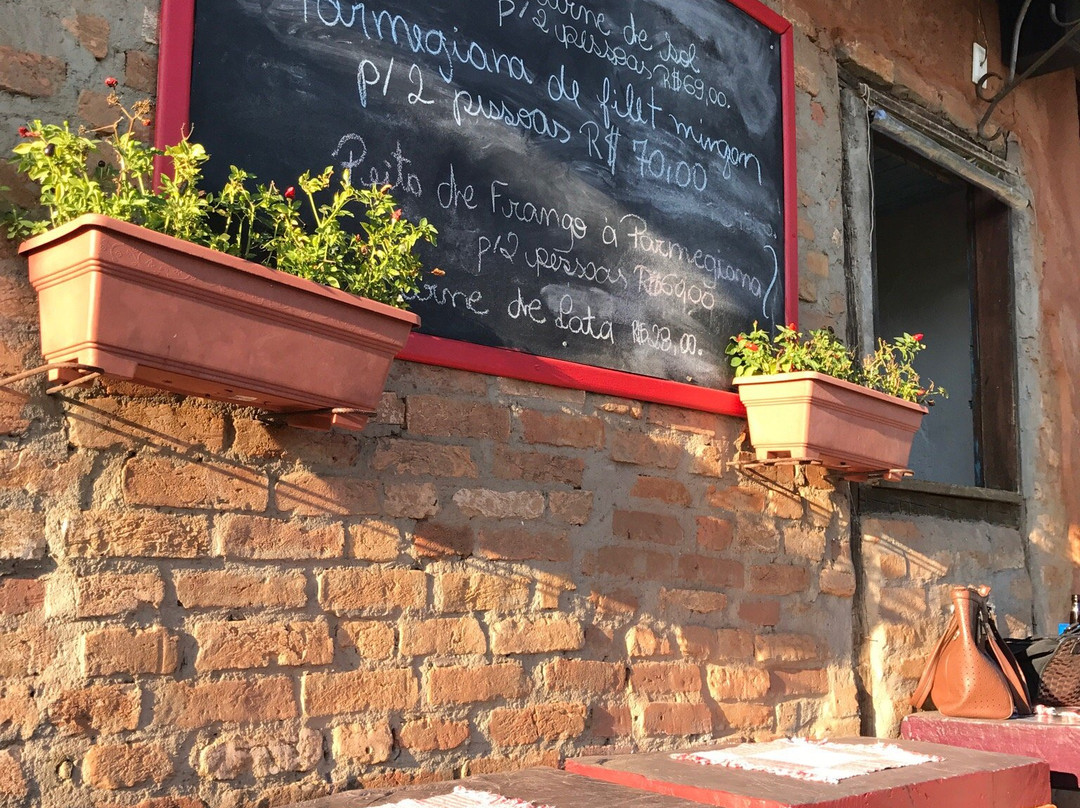 Carne de sol
p/2 pessoas R$69,00.
Parmegiana de filet mingon
p/2 pissoas R$ 70,00
Peito de Frango à Parmegiana
p/2 pessoas R$69,00
Carne de Lata R$28,00.